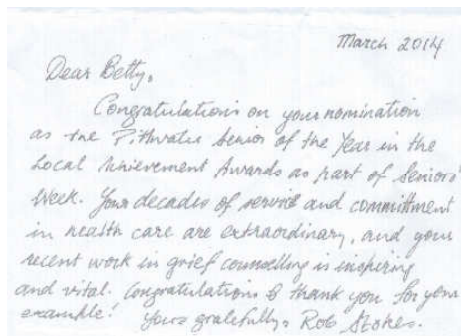 March 2014
Dear Betty,
Congratulations on your nomination
as the Pittwater Senior of the Year in the
Local Achievement Awards as part of Seniors'
Week. Your decades of service and committment
in health care are extraordinary, and your
recent work in grief counselling is inspiring
and vital. Congratulations & thank you for your
example! Yours gratefully, Rob Stokes.